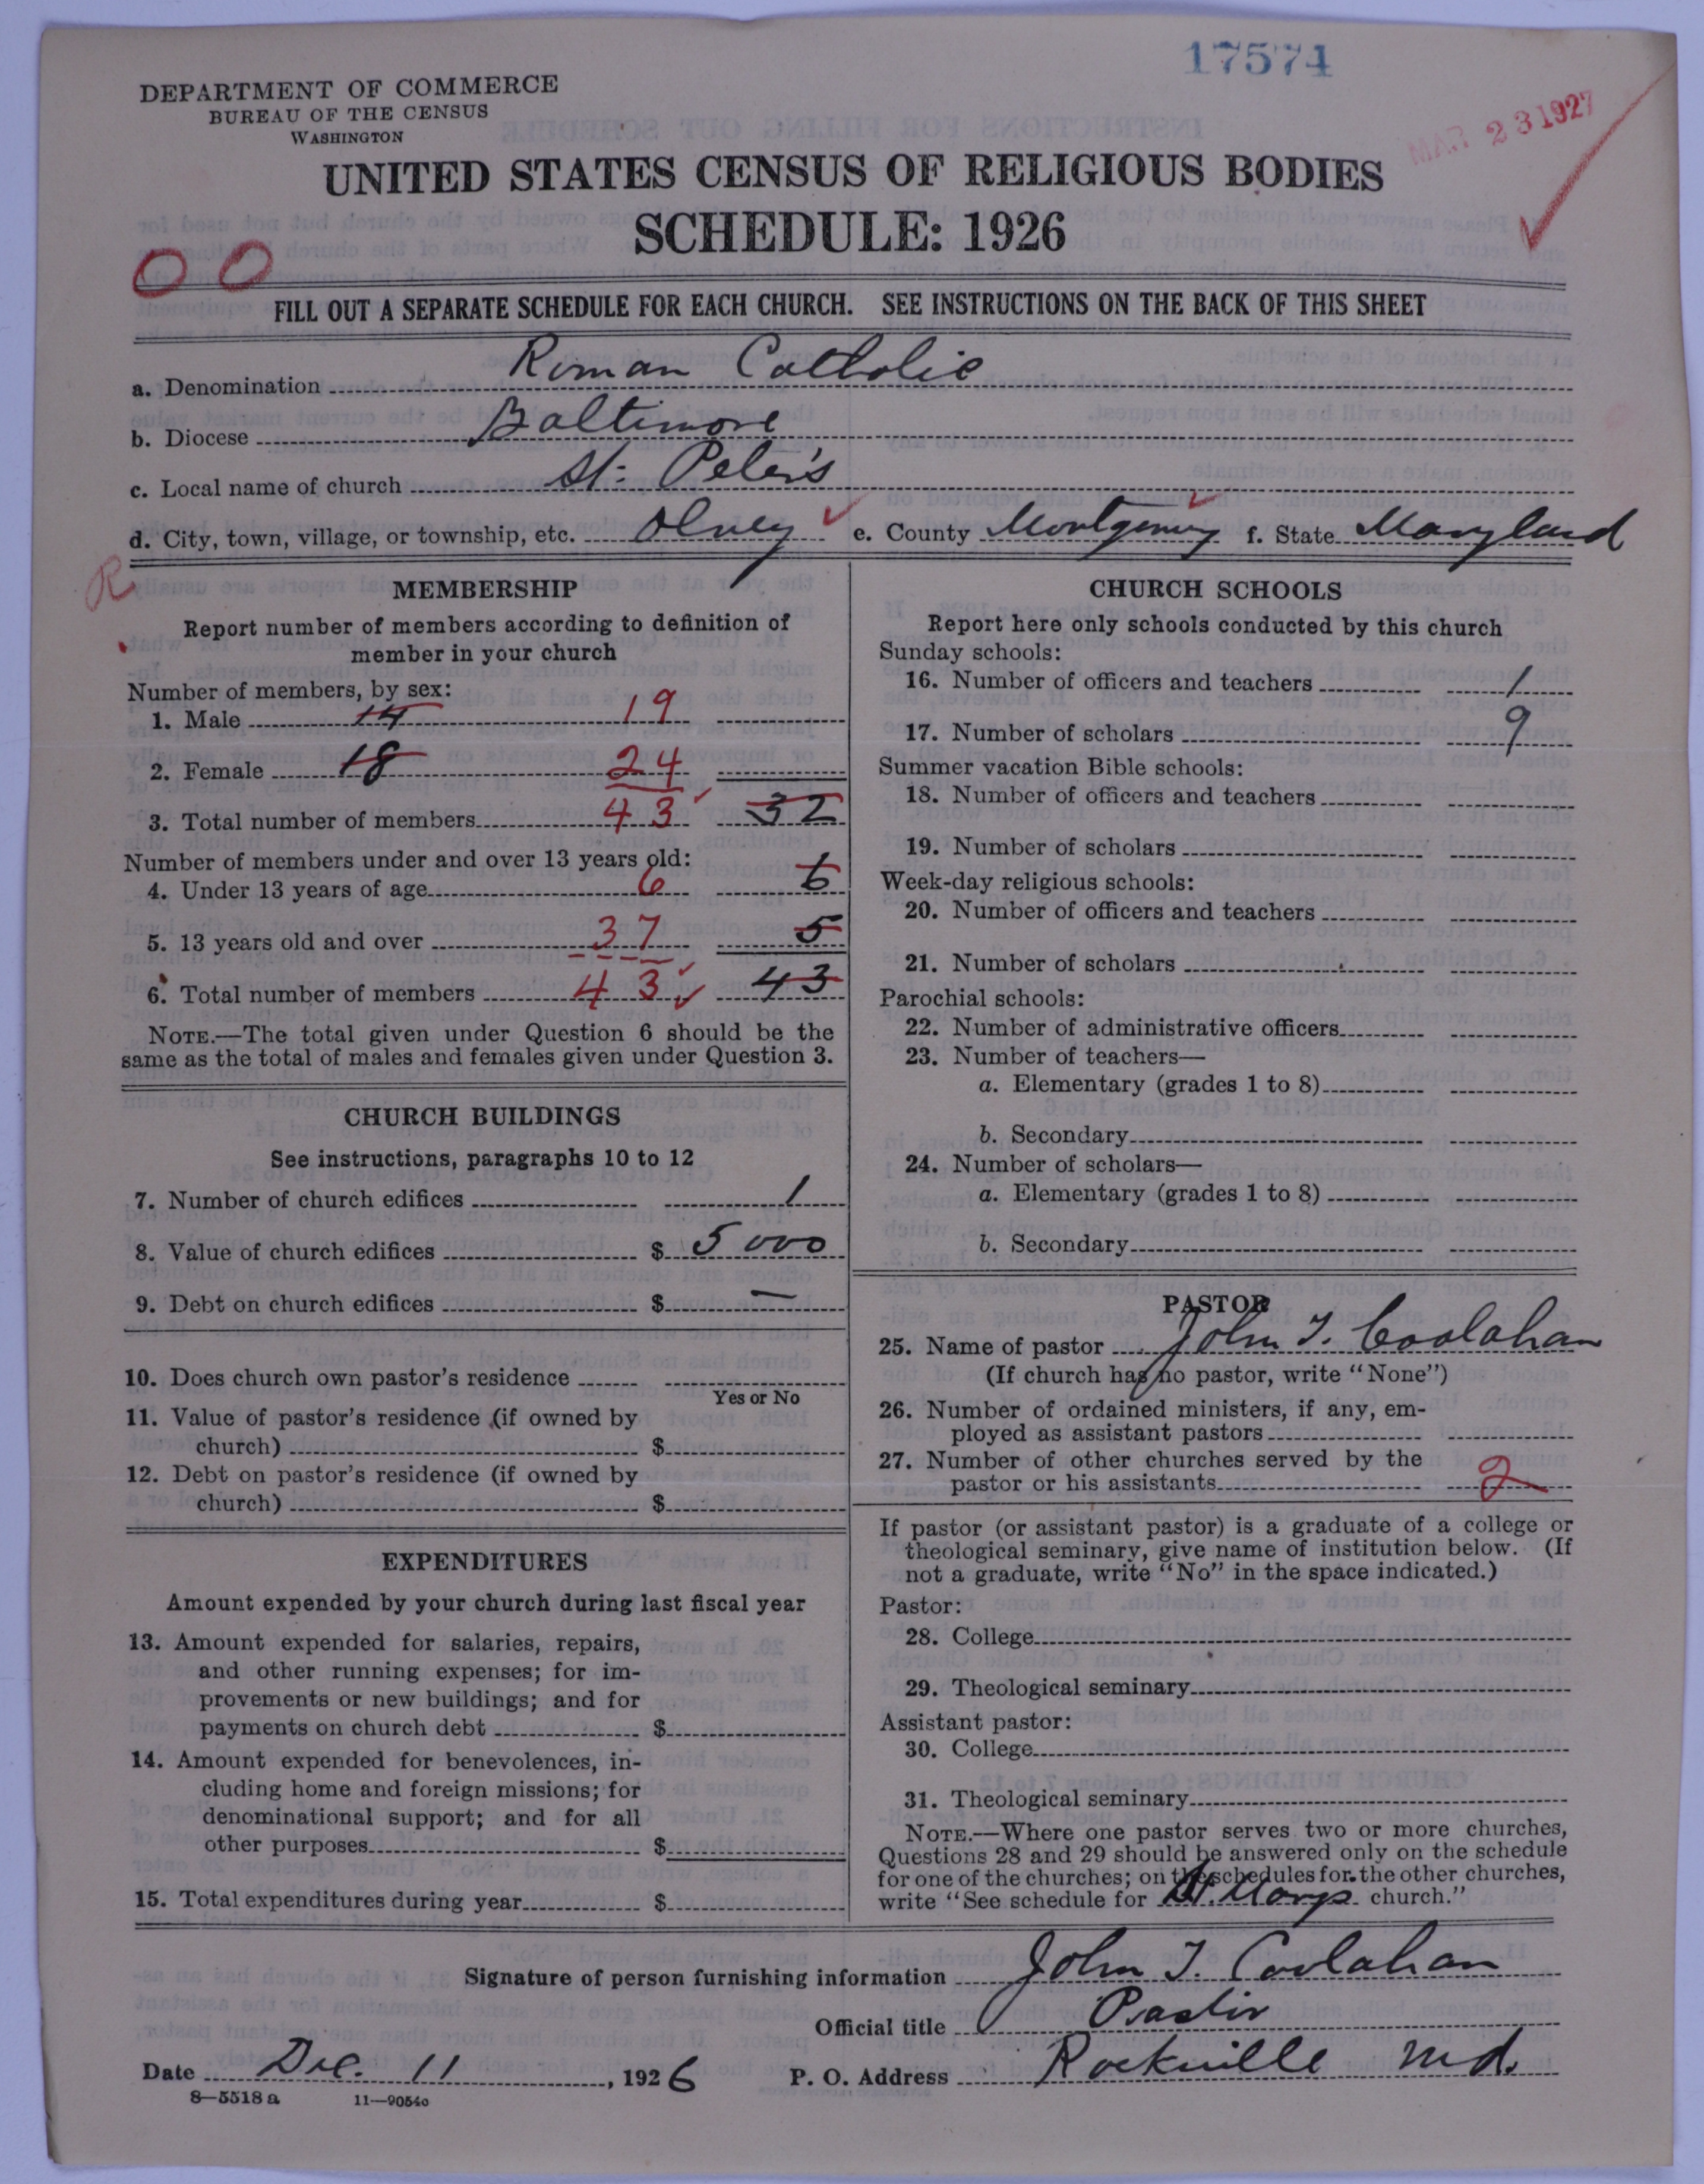 17574
MAR 23 1927
DEPARTMENT OF COMMERCE
BUREAU OF THE CENSUS
WASHINGTON
UNITED STATES CENSUS OF RELIGIOUS BODIES
SCHEDULE: 1926
00
FILL OUT A SEPARATE SCHEDULE FOR EACH CHURCH. SEE INSTRUCTIONS ON THE BACK OF THIS SHEET
a. Denomination Roman Catholic
b. Diocese Baltimore
c. Local name of church St. Peter's
d. City, town, village, or township, etc. Olney e. County Montgomery f. State Maryland
R
MEMBERSHIP
Report number of members according to definition of
member in your church
Number of members, by sex:
1. Male 14 19
2. Female 18 24
3. Total number of members 43 32
Number of members under and over 13 years old:
4. Under 13 years of age 6 6
5. 13 years old and over 37 5
6. Total number of members 43 43
NOTE.—The total given under Question 6 should be the
same as the total of males and females given under Question 3.
CHURCH BUILDINGS
See instructions, paragraphs 10 to 12
7. Number of church edifices 1
8. Value of church edifices $ 5000
9. Debt on church edifices $ —
10. Does church own pastor's residence
Yes or No
11. Value of pastor's residence (if owned by
church) $
12. Debt on pastor's residence (if owned by
church) $
EXPENDITURES
Amount expended by your church during last fiscal year
13. Amount expended for salaries, repairs,
and other running expenses; for im-
provements or new buildings; and for
payments on church debt $
14. Amount expended for benevolences, in-
cluding home and foreign missions; for
denominational support; and for all
other purposes $
15. Total expenditures during year $
CHURCH SCHOOLS
Report here only schools conducted by this church
Sunday schools:
16. Number of officers and teachers 1
17. Number of scholars 9
Summer vacation Bible schools:
18. Number of officers and teachers
19. Number of scholars
Week-day religious schools:
20. Number of officers and teachers
21. Number of scholars
Parochial schools:
22. Number of administrative officers
23. Number of teachers—
a. Elementary (grades 1 to 8)
b. Secondary
24. Number of scholars—
a. Elementary (grades 1 to 8)
b. Secondary
PASTOR
25. Name of pastor John T. Coolahan
(If church has no pastor, write "None")
26. Number of ordained ministers, if any, em-
ployed as assistant pastors
27. Number of other churches served by the
pastor or his assistants 2
If pastor (or assistant pastor) is a graduate of a college or
theological seminary, give name of institution below. (If
not a graduate, write "No" in the space indicated.)
Pastor:
28. College
29. Theological seminary
Assistant pastor:
30. College
31. Theological seminary
NOTE.—Where one pastor serves two or more churches,
Questions 28 and 29 should be answered only on the schedule
for one of the churches; on the schedules for the other churches,
write "See schedule for St. Marys church."
Signature of person furnishing information John T. Coolahan
Official title Pastor
Date Dec. 11, 1926 P. O. Address Rockville Md.
8—5518 a 11—9054c